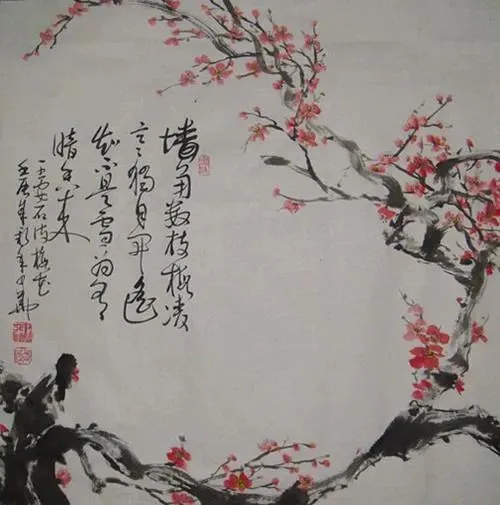 墙角数枝梅凌
寒独自开遥
知不是雪为有
暗香来
王安石诗梅花